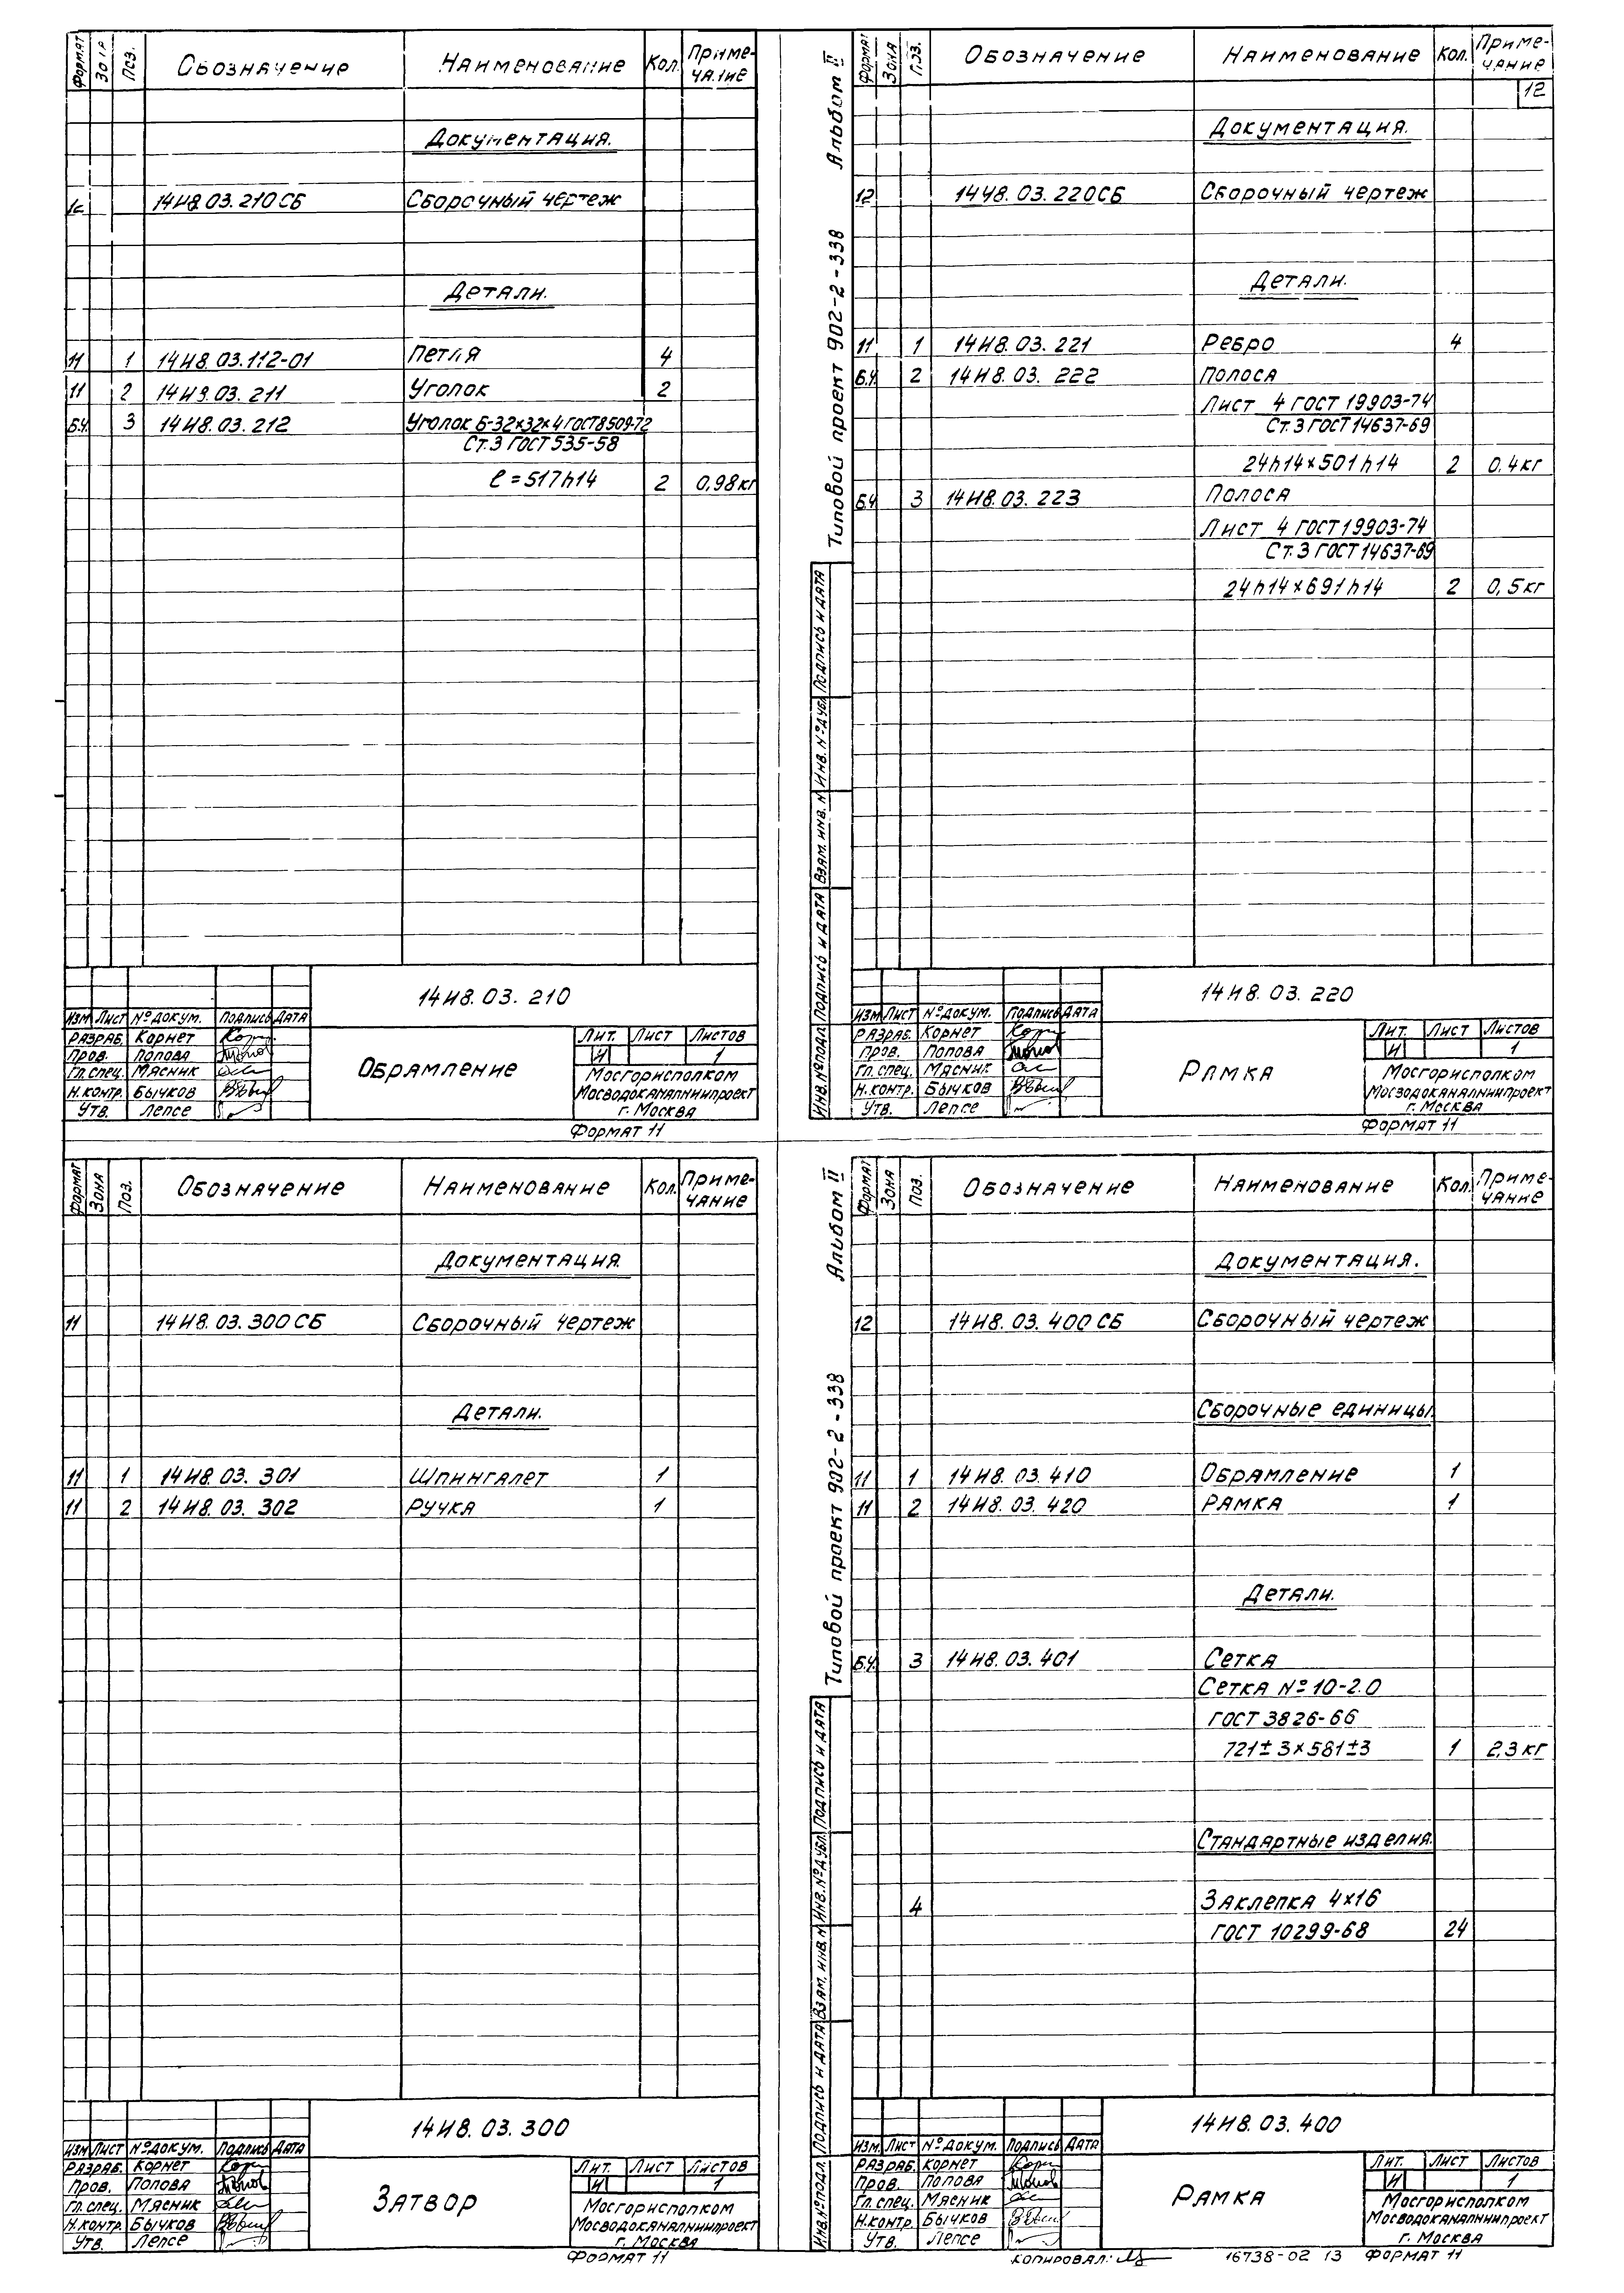 Формат Зона Поз. Обозначение Наименование Кол. Приме-
чание
Документация.
14И8.03.210СБ Сборочный чертеж
Детали.
11 1 14И8.03.112-01 Петля 4
11 2 14И9.03.211 Уголок 2
Б.Ч. 3 14И8.03.212 Уголок Б-32×32×4 ГОСТ 8509-72
Ст.3 ГОСТ 535-58
ℓ=517h14 2 0,98кг
14И8.03.210
Изм Лист №докум. Подпись Дата
Разраб. Корнет
Пров. Попова
Гл.спец. Мясник
Н.контр. Бычков
Утв. Лепсе
Обрамление
Лит. Лист Листов
И 1
Мосгорисполком
Мосводоканалниипроект
г. Москва
Формат 11
Альбом II
Типовой проект 902-2-338
Инв.№подл. Подпись и дата Взам. инв. № Инв. №дубл. Подпись и дата
Формат Зона Поз. Обозначение Наименование Кол. Приме-
чание
12
Документация.
12 14Ч8.03.220СБ Сборочный чертеж
Детали.
11 1 14И8.03.221 Ребро 4
Б.Ч. 2 14И8.03.222 Полоса
Лист 4 ГОСТ 19903-74
Ст.3 ГОСТ 14637-69
24h14×501h14 2 0.4кг
Б.Ч. 3 14И8.03.223 Полоса
Лист 4 ГОСТ 19903-74
Ст.3 ГОСТ 14637-69
24h14×691h14 2 0,5кг
14И8.03.220
Изм Лист №докум. Подпись Дата
Разраб. Корнет
Пров. Попова
Гл.спец. Мясник
Н.контр. Бычков
Утв. Лепсе
Рамка
Лит. Лист Листов
И 1
Мосгорисполком
Мосводоканалниипроект
г. Москва
Формат 11
Формат Зона Поз. Обозначение Наименование Кол. Приме-
чание
Документация.
11 14И8.03.300СБ Сборочный чертеж
Детали.
11 1 14И8.03.301 Шпингалет 1
11 2 14И8.03.302 Ручка 1
14И8.03.300
Изм Лист №докум. Подпись Дата
Разраб. Корнет
Пров. Попова
Гл.спец. Мясник
Н.контр. Бычков
Утв. Лепсе
Затвор
Лит. Лист Листов
И 1
Мосгорисполком
Мосводоканалниипроект
г. Москва
Формат 11
Альбом II
Типовой проект 902-2-338
Инв.№подл. Подпись и дата Взам. инв. № Инв.№дубл. Подпись и дата
Формат Зона Поз. Обозначение Наименование Кол. Приме-
чание
Документация.
12 14И8.03.400СБ Сборочный чертеж
Сборочные единицы.
11 1 14И8.03.410 Обрамление 1
11 2 14И8.03.420 Рамка 1
Детали.
Б.Ч. 3 14И8.03.401 Сетка
Сетка №10-2.0
ГОСТ 3826-66
721±3×581±3 1 2,3кг
Стандартные изделия.
4 Заклепка 4×16
ГОСТ 10299-68 24
14И8.03.400
Изм. Лист №докум. Подпись Дата
Разраб. Корнет
Пров. Попова
Гл.спец. Мясник
Н.контр. Бычков
Утв. Лепсе
Рамка
Лит. Лист Листов
И 1
Мосгорисполком
Мосводоканалниипроект
г. Москва
Копировал: 16738-02 13 Формат 11